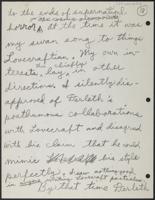 to the ends of supernatural
horror. At the time it was
my swan song to things
Lovecraftian. My own in-
terests lay in other
directions. I silently dis-
approved of Derleth's
posthumous collaborations
with Lovecraft and disagreed
with his claim that he could
mimic his style
perfectly.
By that time Derleth